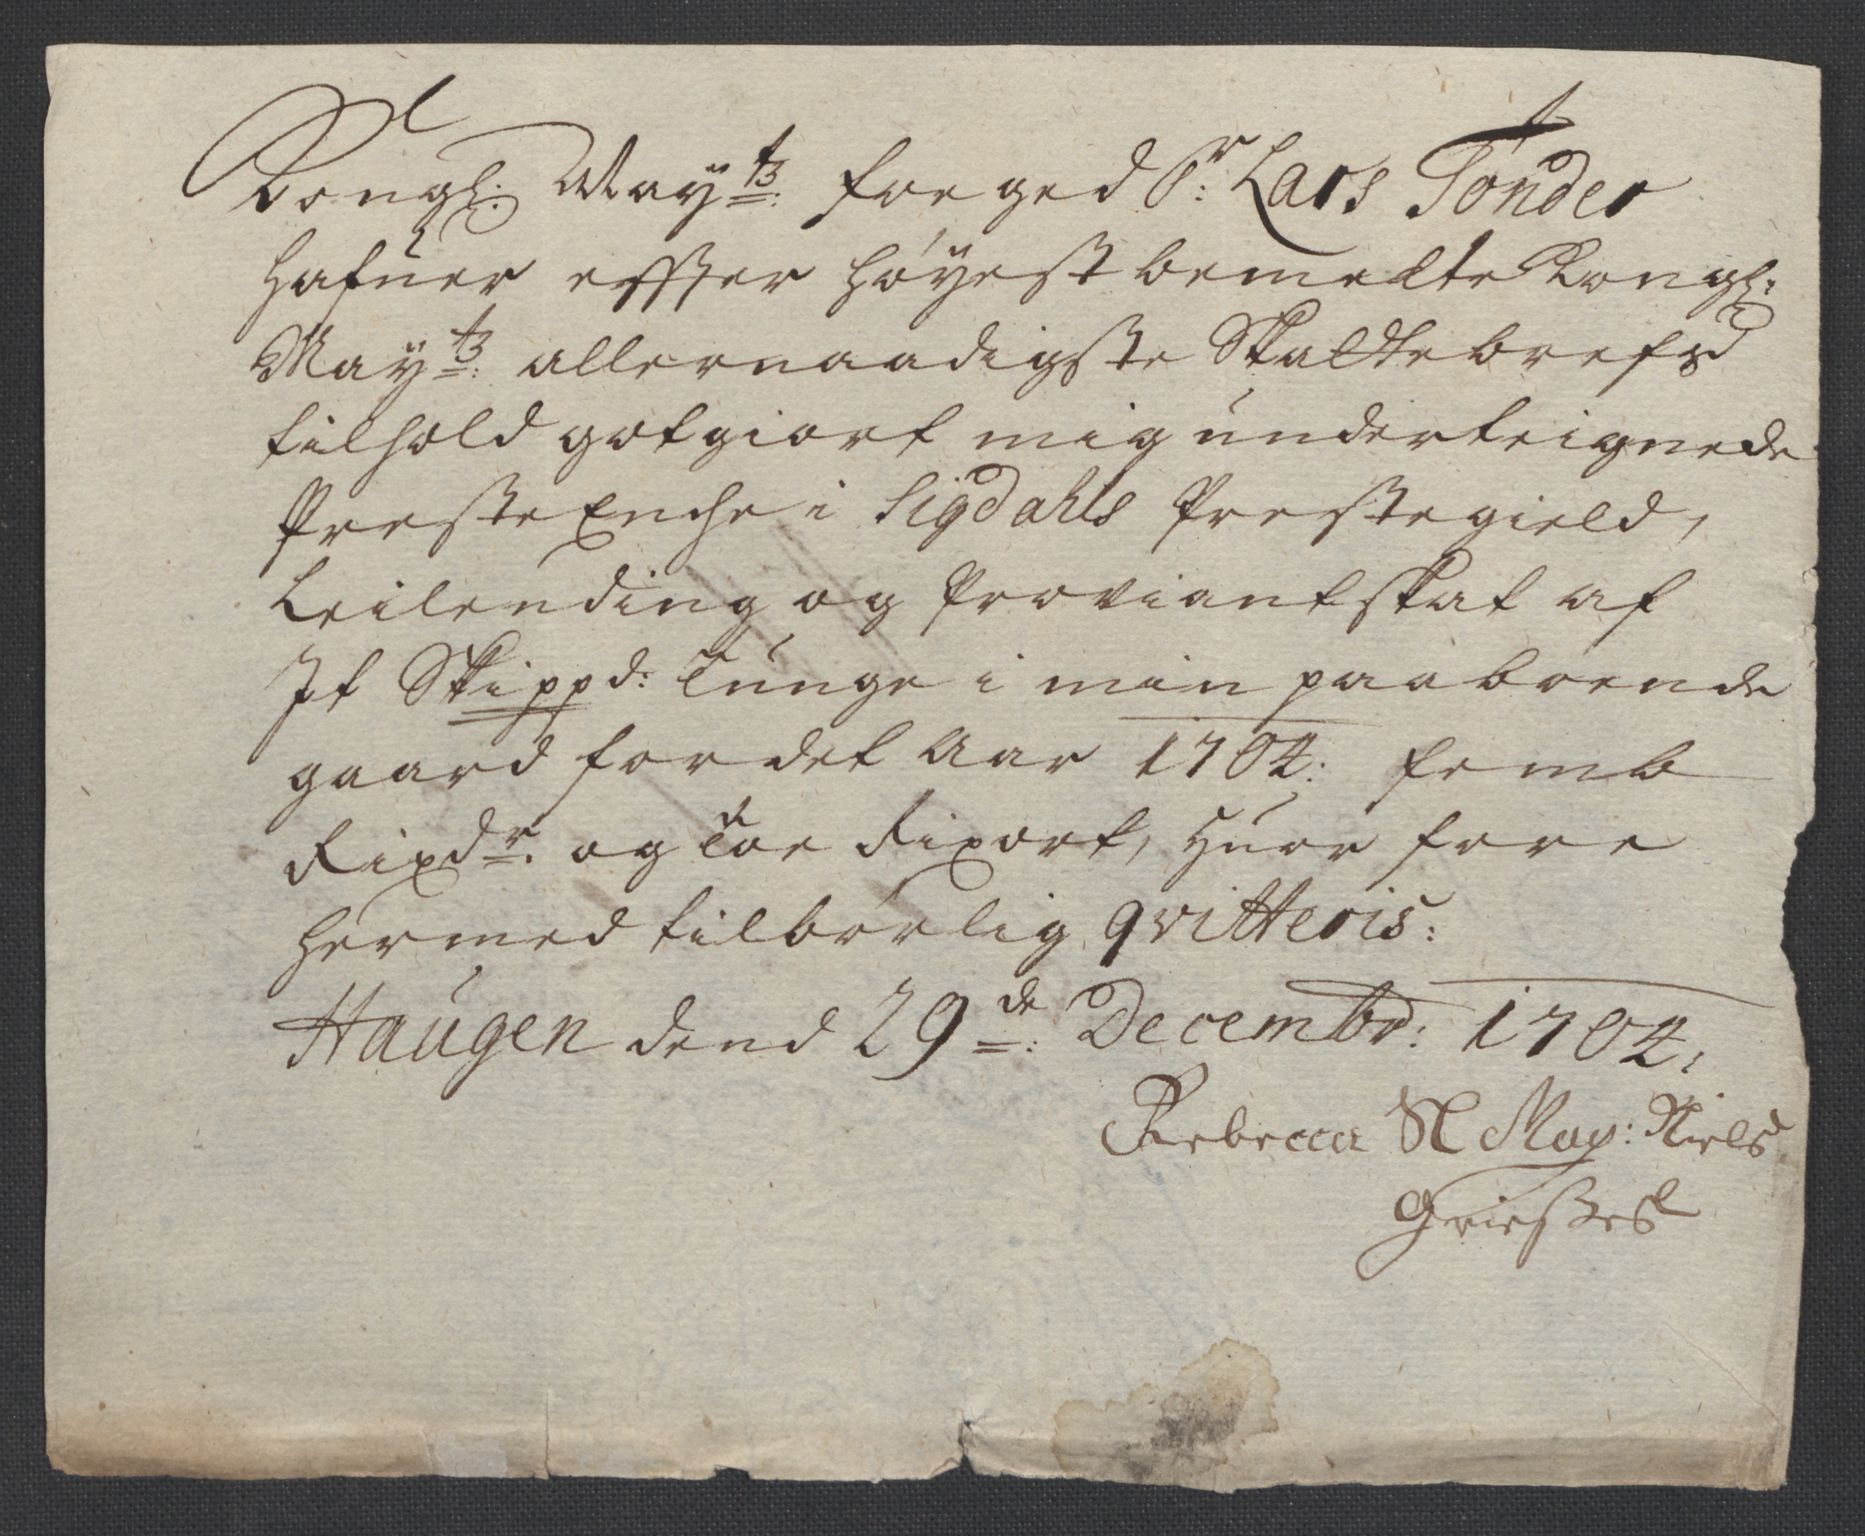 Kongl: Mayts: foeged Sr: Lars Tønder
hafuer effter høyest bemelte Kongl:
Mayts: allernaadigste Skattebrefs
tilhold gotgiort mig underteignede
Preste Enche i Sigdahls Prestegield,
Leilending og Proviantskat af
It Skippd: Tunge i min paaboende
gaard for det Aar 1704: femb
Rixdr: og toe Rixort, huor fore
hermed tilbørlig qvitteris:
Haugen dend 29de: Decembr: 1704.
Rebecca Niels